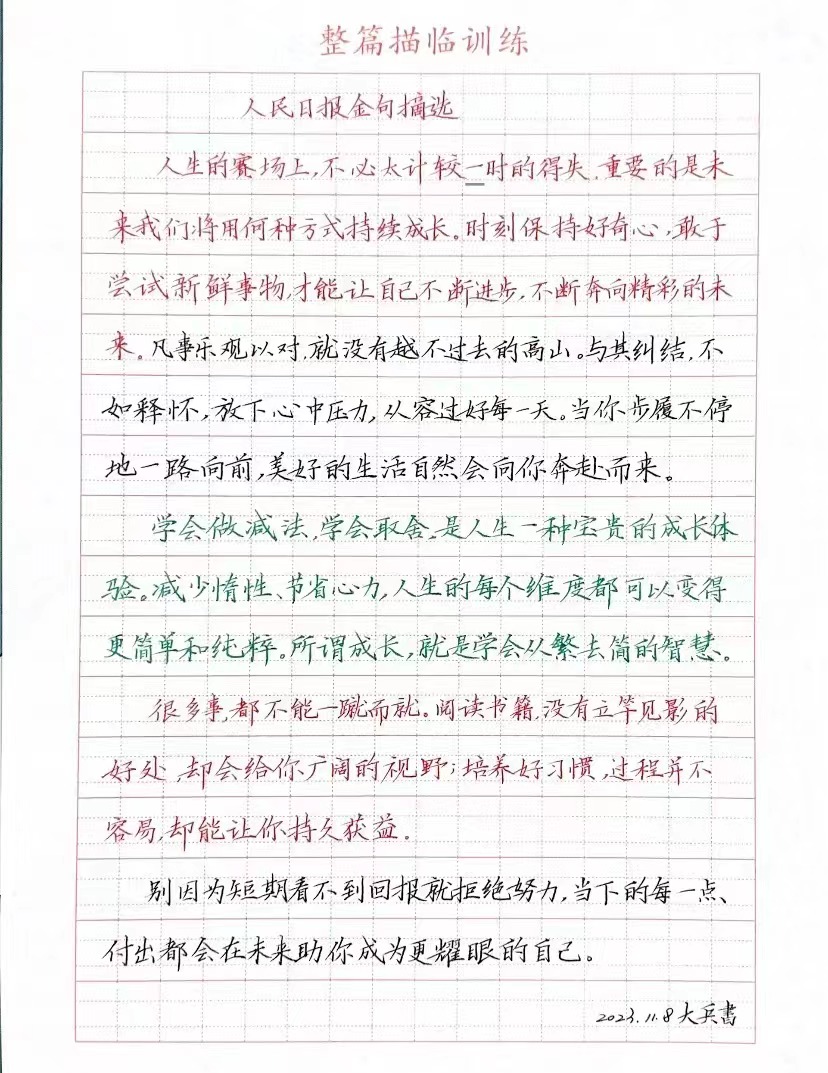 整篇描临训练
人民日报金句摘选
人生的赛场上,不必太计较一时的得失,重要的是未
来我们将用何种方式持续成长。时刻保持好奇心,敢于
尝试新鲜事物,才能让自己不断进步,不断奔向精彩的未
来。凡事乐观以对,就没有越不过去的高山。与其纠结,不
如释怀,放下心中压力,从容过好每一天。当你步履不停
地一路向前,美好的生活自然会向你奔赴而来。
学会做减法,学会取舍,是人生一种宝贵的成长体
验。减少惰性、节省心力,人生的每个维度都可以变得
更简单和纯粹。所谓成长,就是学会从繁去简的智慧。
很多事,都不能一蹴而就。阅读书籍,没有立竿见影的
好处,却会给你广阔的视野;培养好习惯,过程并不
容易,却能让你持久获益。
别因为短期看不到回报就拒绝努力,当下的每一点、
付出都会在未来助你成为更耀眼的自己。
2023.11.8大兵書